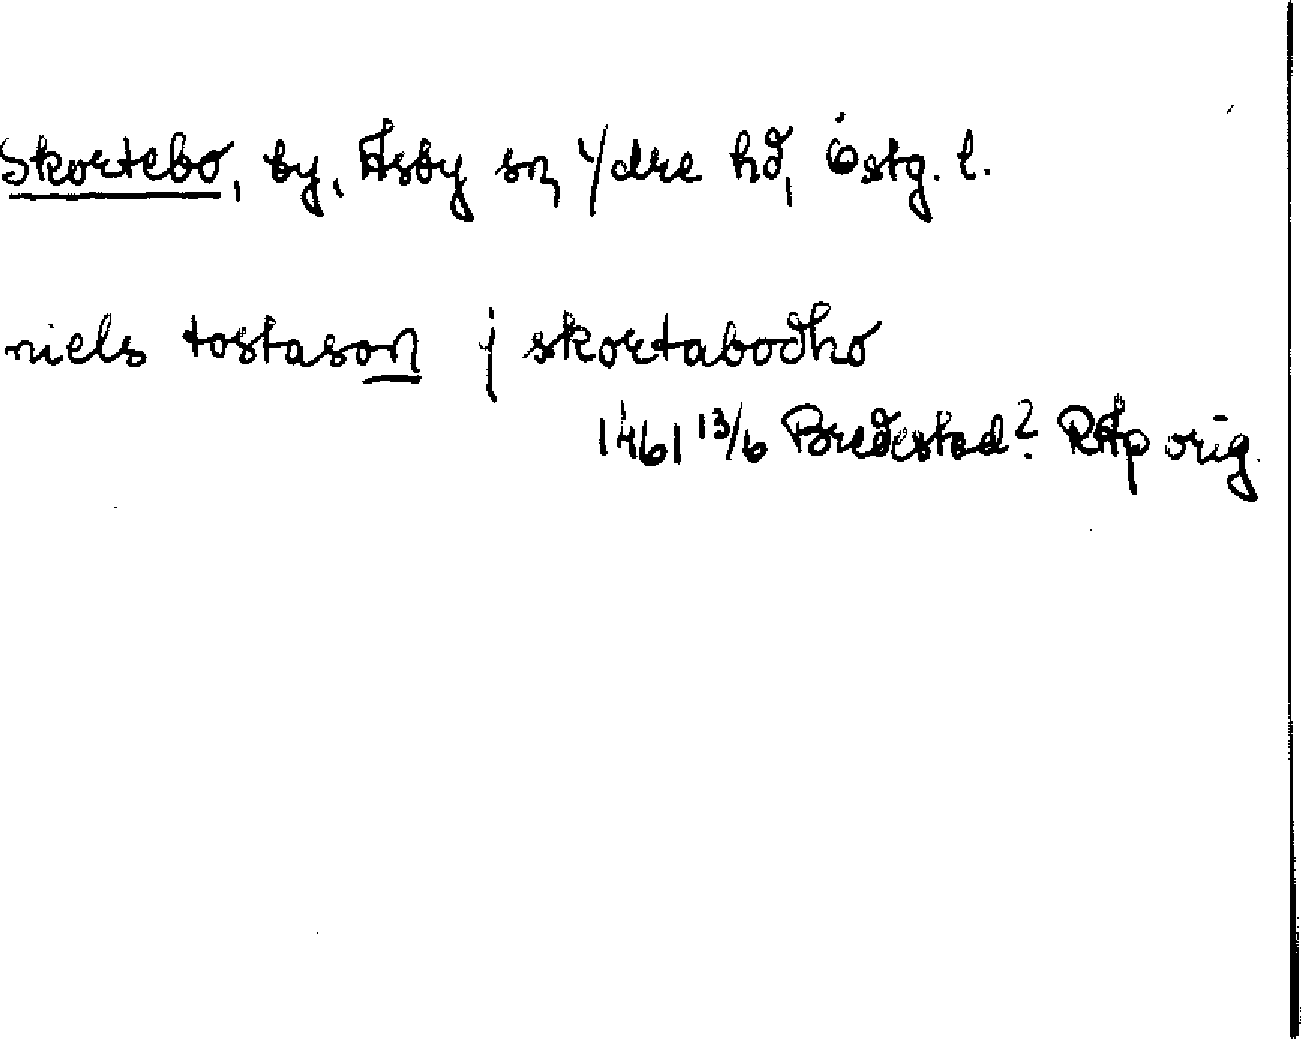 Skortebo, by, Asby sn, Ydre hd, Östg. l.
niels tostason j skortabodho
1461 13/6 Bredestad? RAp orig.